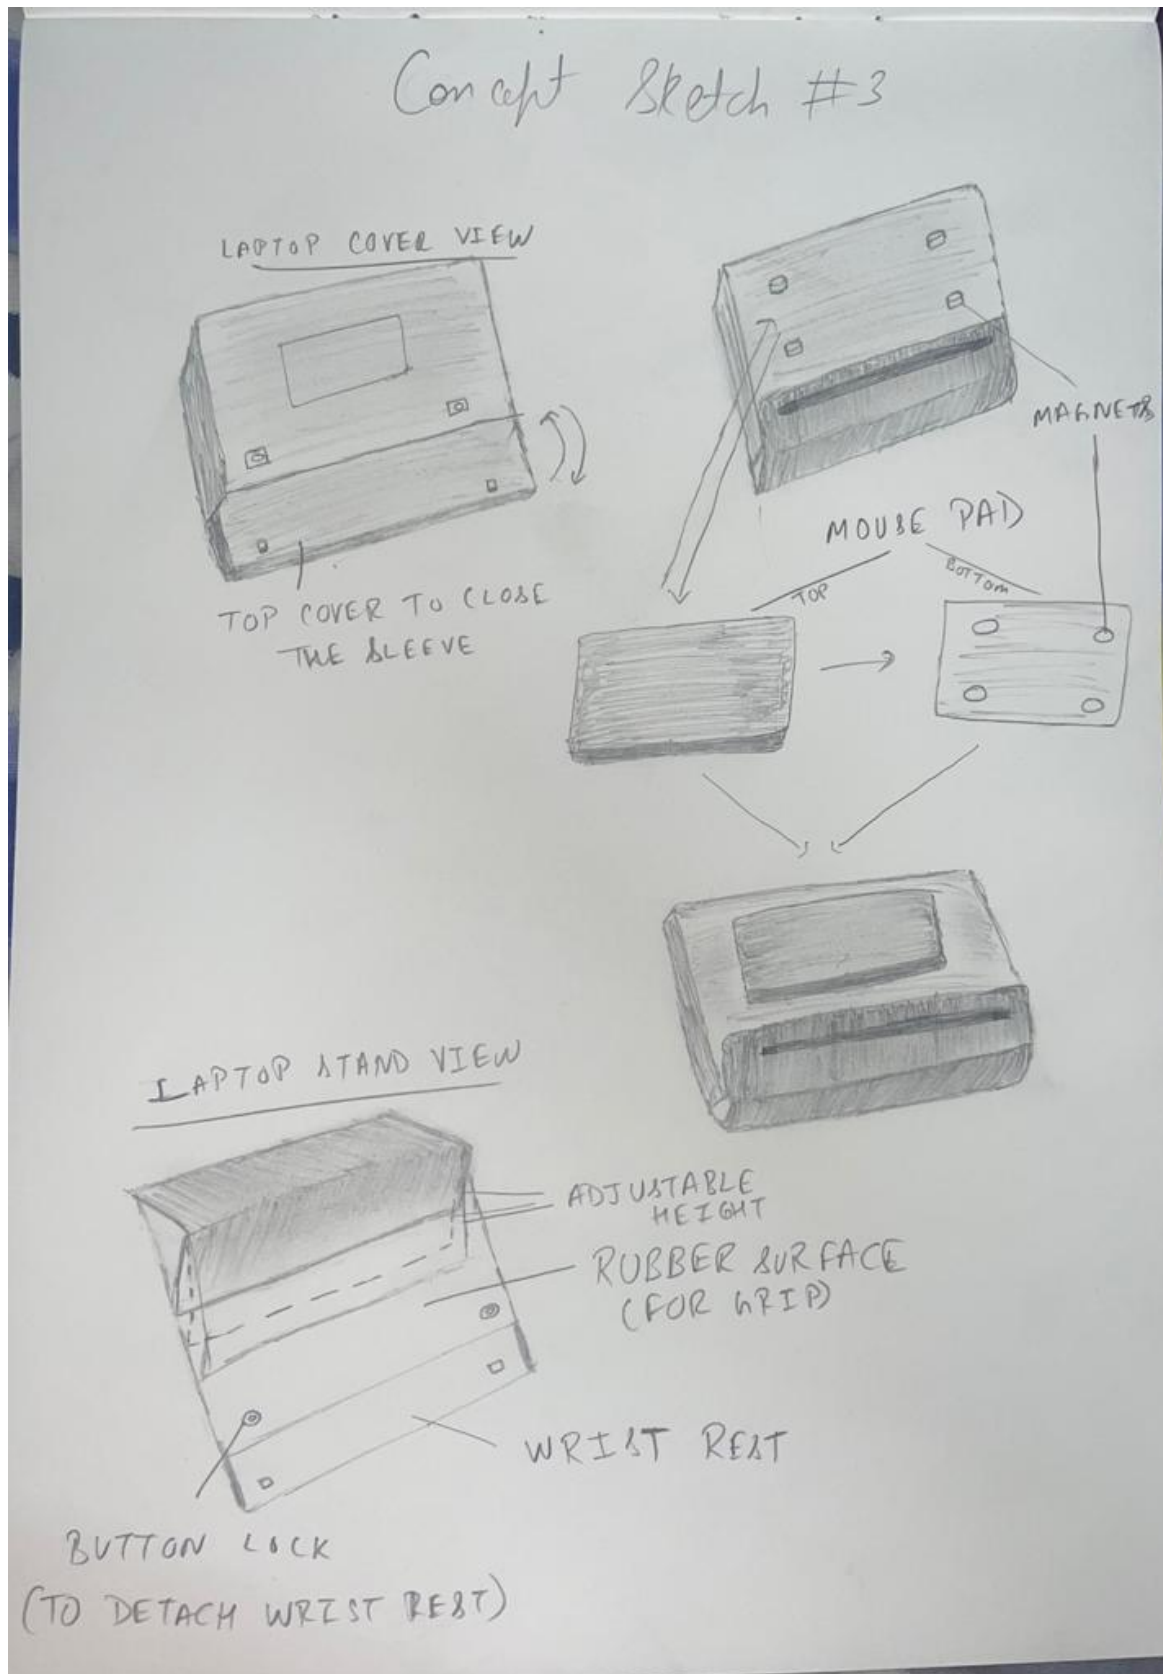 Concept Sketch #3
LAPTOP COVER VIEW
TOP COVER TO CLOSE
THE SLEEVE
MAGNETS
MOUSE PAD
TOP
BOTTOM
LAPTOP STAND VIEW
ADJUSTABLE
HEIGHT
RUBBER SURFACE
(FOR GRIP)
WRIST REST
BUTTON LOCK
(TO DETACH WRIST REST)